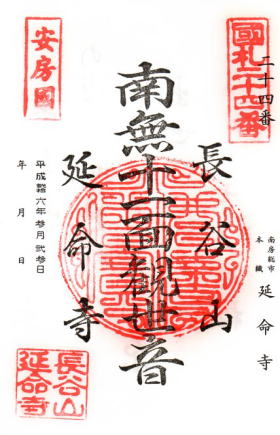 國札二十四番
二十四番
安房國
長谷山
南無十一面観世音
延命寺
南房総市
本織 延命寺
平成 六年参月弐参日
年 月 日
長谷山
延命寺